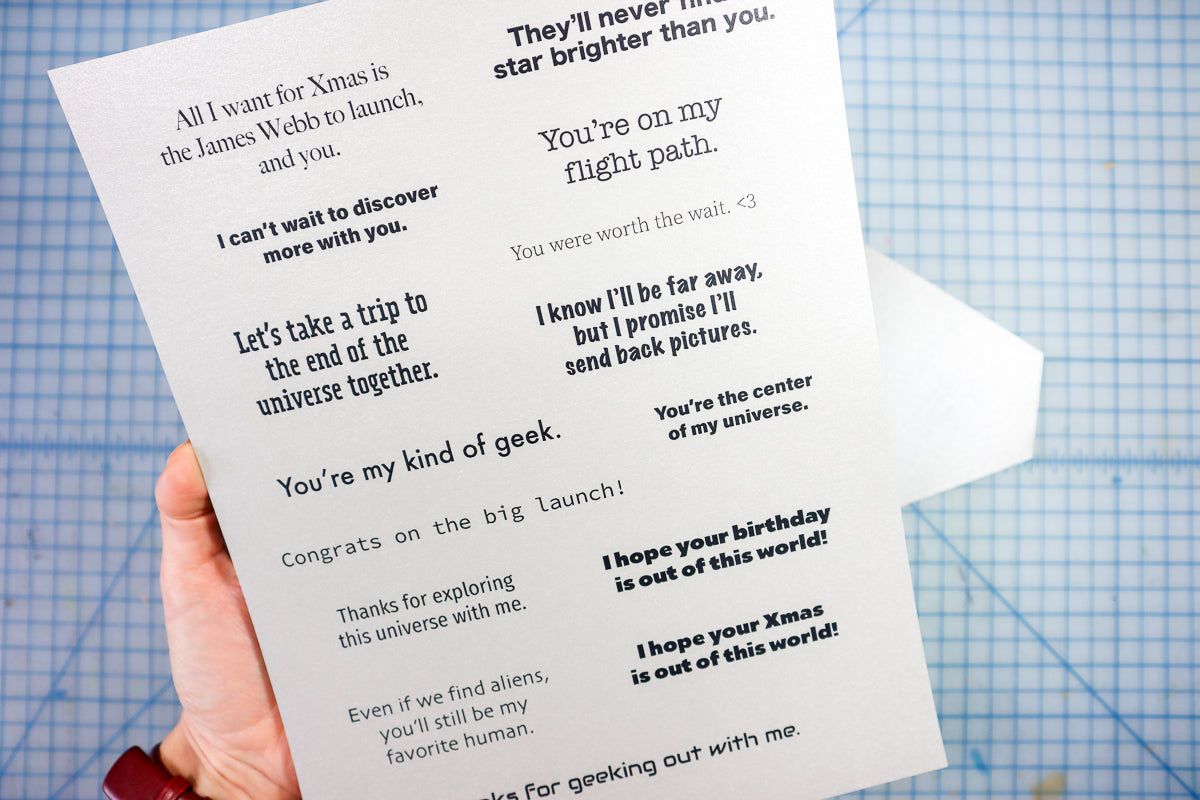 They'll never
star brighter than you.
All I want for Xmas is
the James Webb to launch,
and you.
You're on my
flight path.
I can't wait to discover
more with you.
You were worth the wait. <3
Let's take a trip to
the end of the
universe together.
I know I'll be far away,
but I promise I'll
send back pictures.
You're the center
of my universe.
You're my kind of geek.
Congrats on the big launch!
I hope your birthday
is out of this world!
Thanks for exploring
this universe with me.
I hope your Xmas
is out of this world!
Even if we find aliens,
you'll still be my
favorite human.
for geeking out with me.